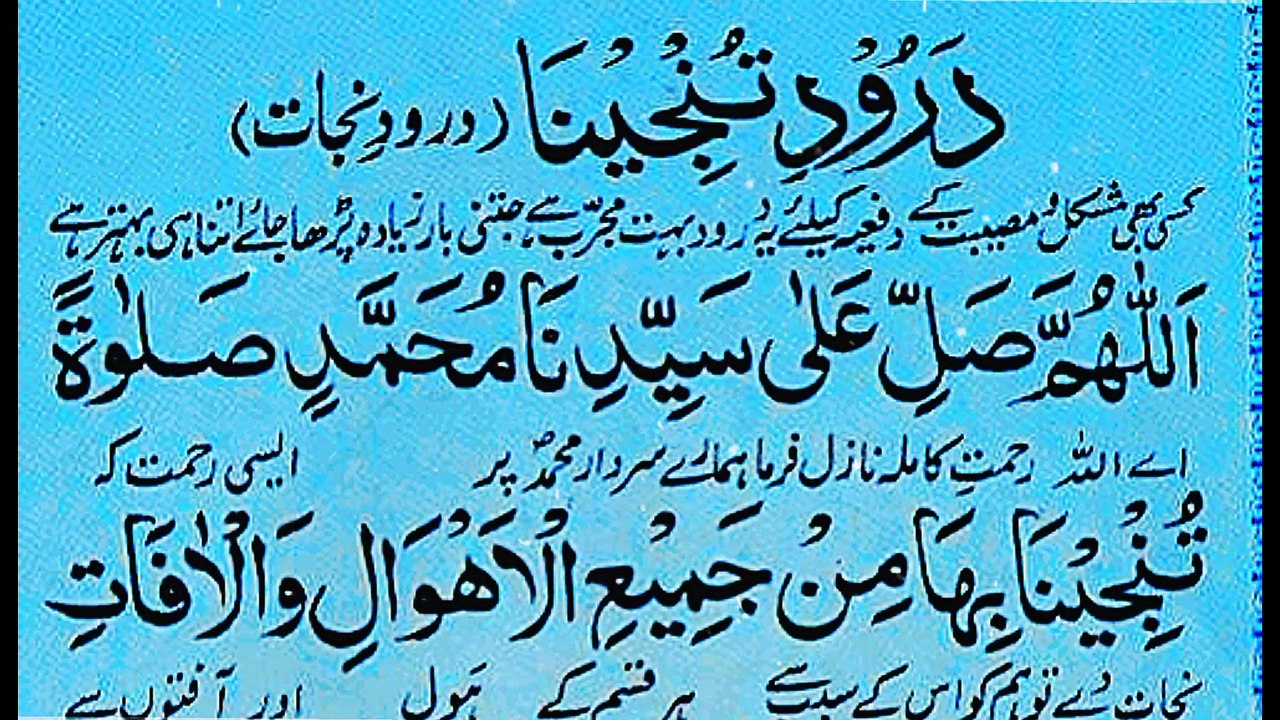 دَرُوْدِ تُنْجِيْنَا (درودِ نجات)
کسی بھی مشکل و مصیبت کے دفعیہ کیلئے یہ درود بہت مجرّب ہے جتنی بار زیادہ پڑھا جائے اتنا ہی بہتر ہے
اَللّٰهُمَّ صَلِّ عَلٰى سَيِّدِنَا مُحَمَّدٍ صَلٰوةً
اے اللہ رحمتِ کاملہ نازل فرما ہمارے سردار محمدؐ پر ایسی رحمت کہ
تُنْجِيْنَا بِهَا مِنْ جَمِيْعِ الْاَهْوَالِ وَالْاٰفَاتِ
نجات دے تو ہم کو اس کے سبب سے ہر قسم کے ہول اور آفتوں سے